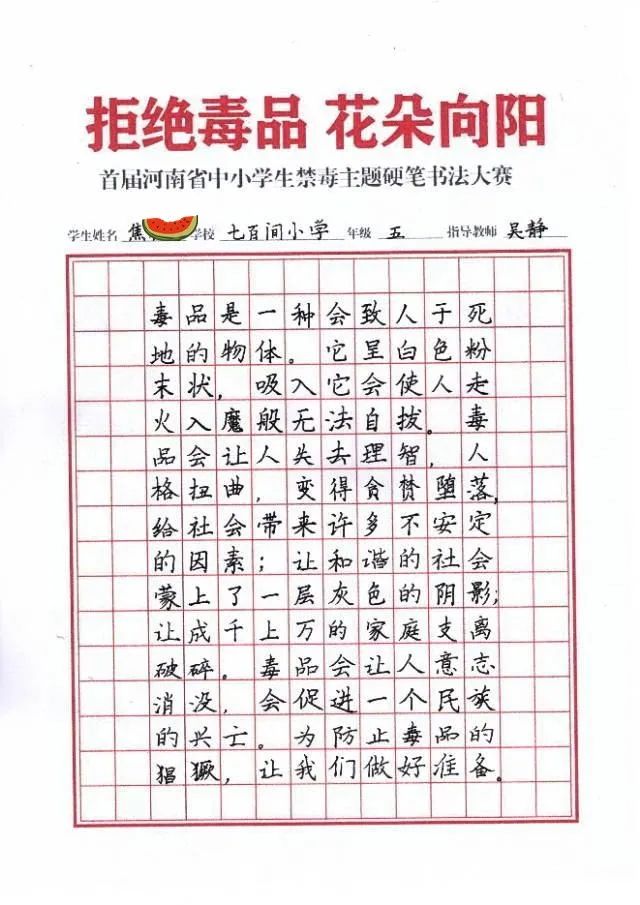 拒绝毒品 花朵向阳
首届河南省中小学生禁毒主题硬笔书法大赛
学生姓名 焦 学校 七百间小学 年级 五 指导教师 吴静
毒品是一种会致人于死
地的物体。它呈白色粉
末状，吸入它会使人走
火入魔般无法自拔。毒
品会让人失去理智，人
格扭曲，变得贪婪堕落，
给社会带来许多不安定
的因素；让和谐的社会
蒙上了一层灰色的阴影；
让成千上万的家庭支离
破碎。毒品会让人意志
消没，会促进一个民族
的兴亡。为防止毒品的
猖獗，让我们做好准备。